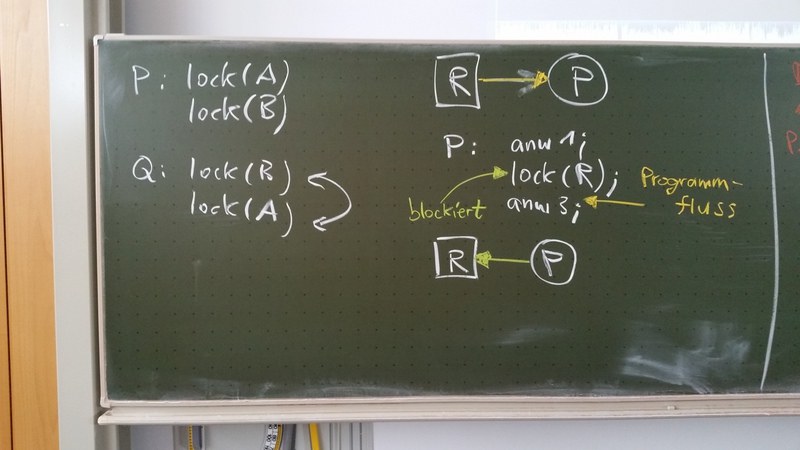 P: lock(A)
lock(B)
Q: lock(B)
lock(A)
R P
P: anw 1;
lock(R);
anw 3;
blockiert
Programm-
fluss
R P